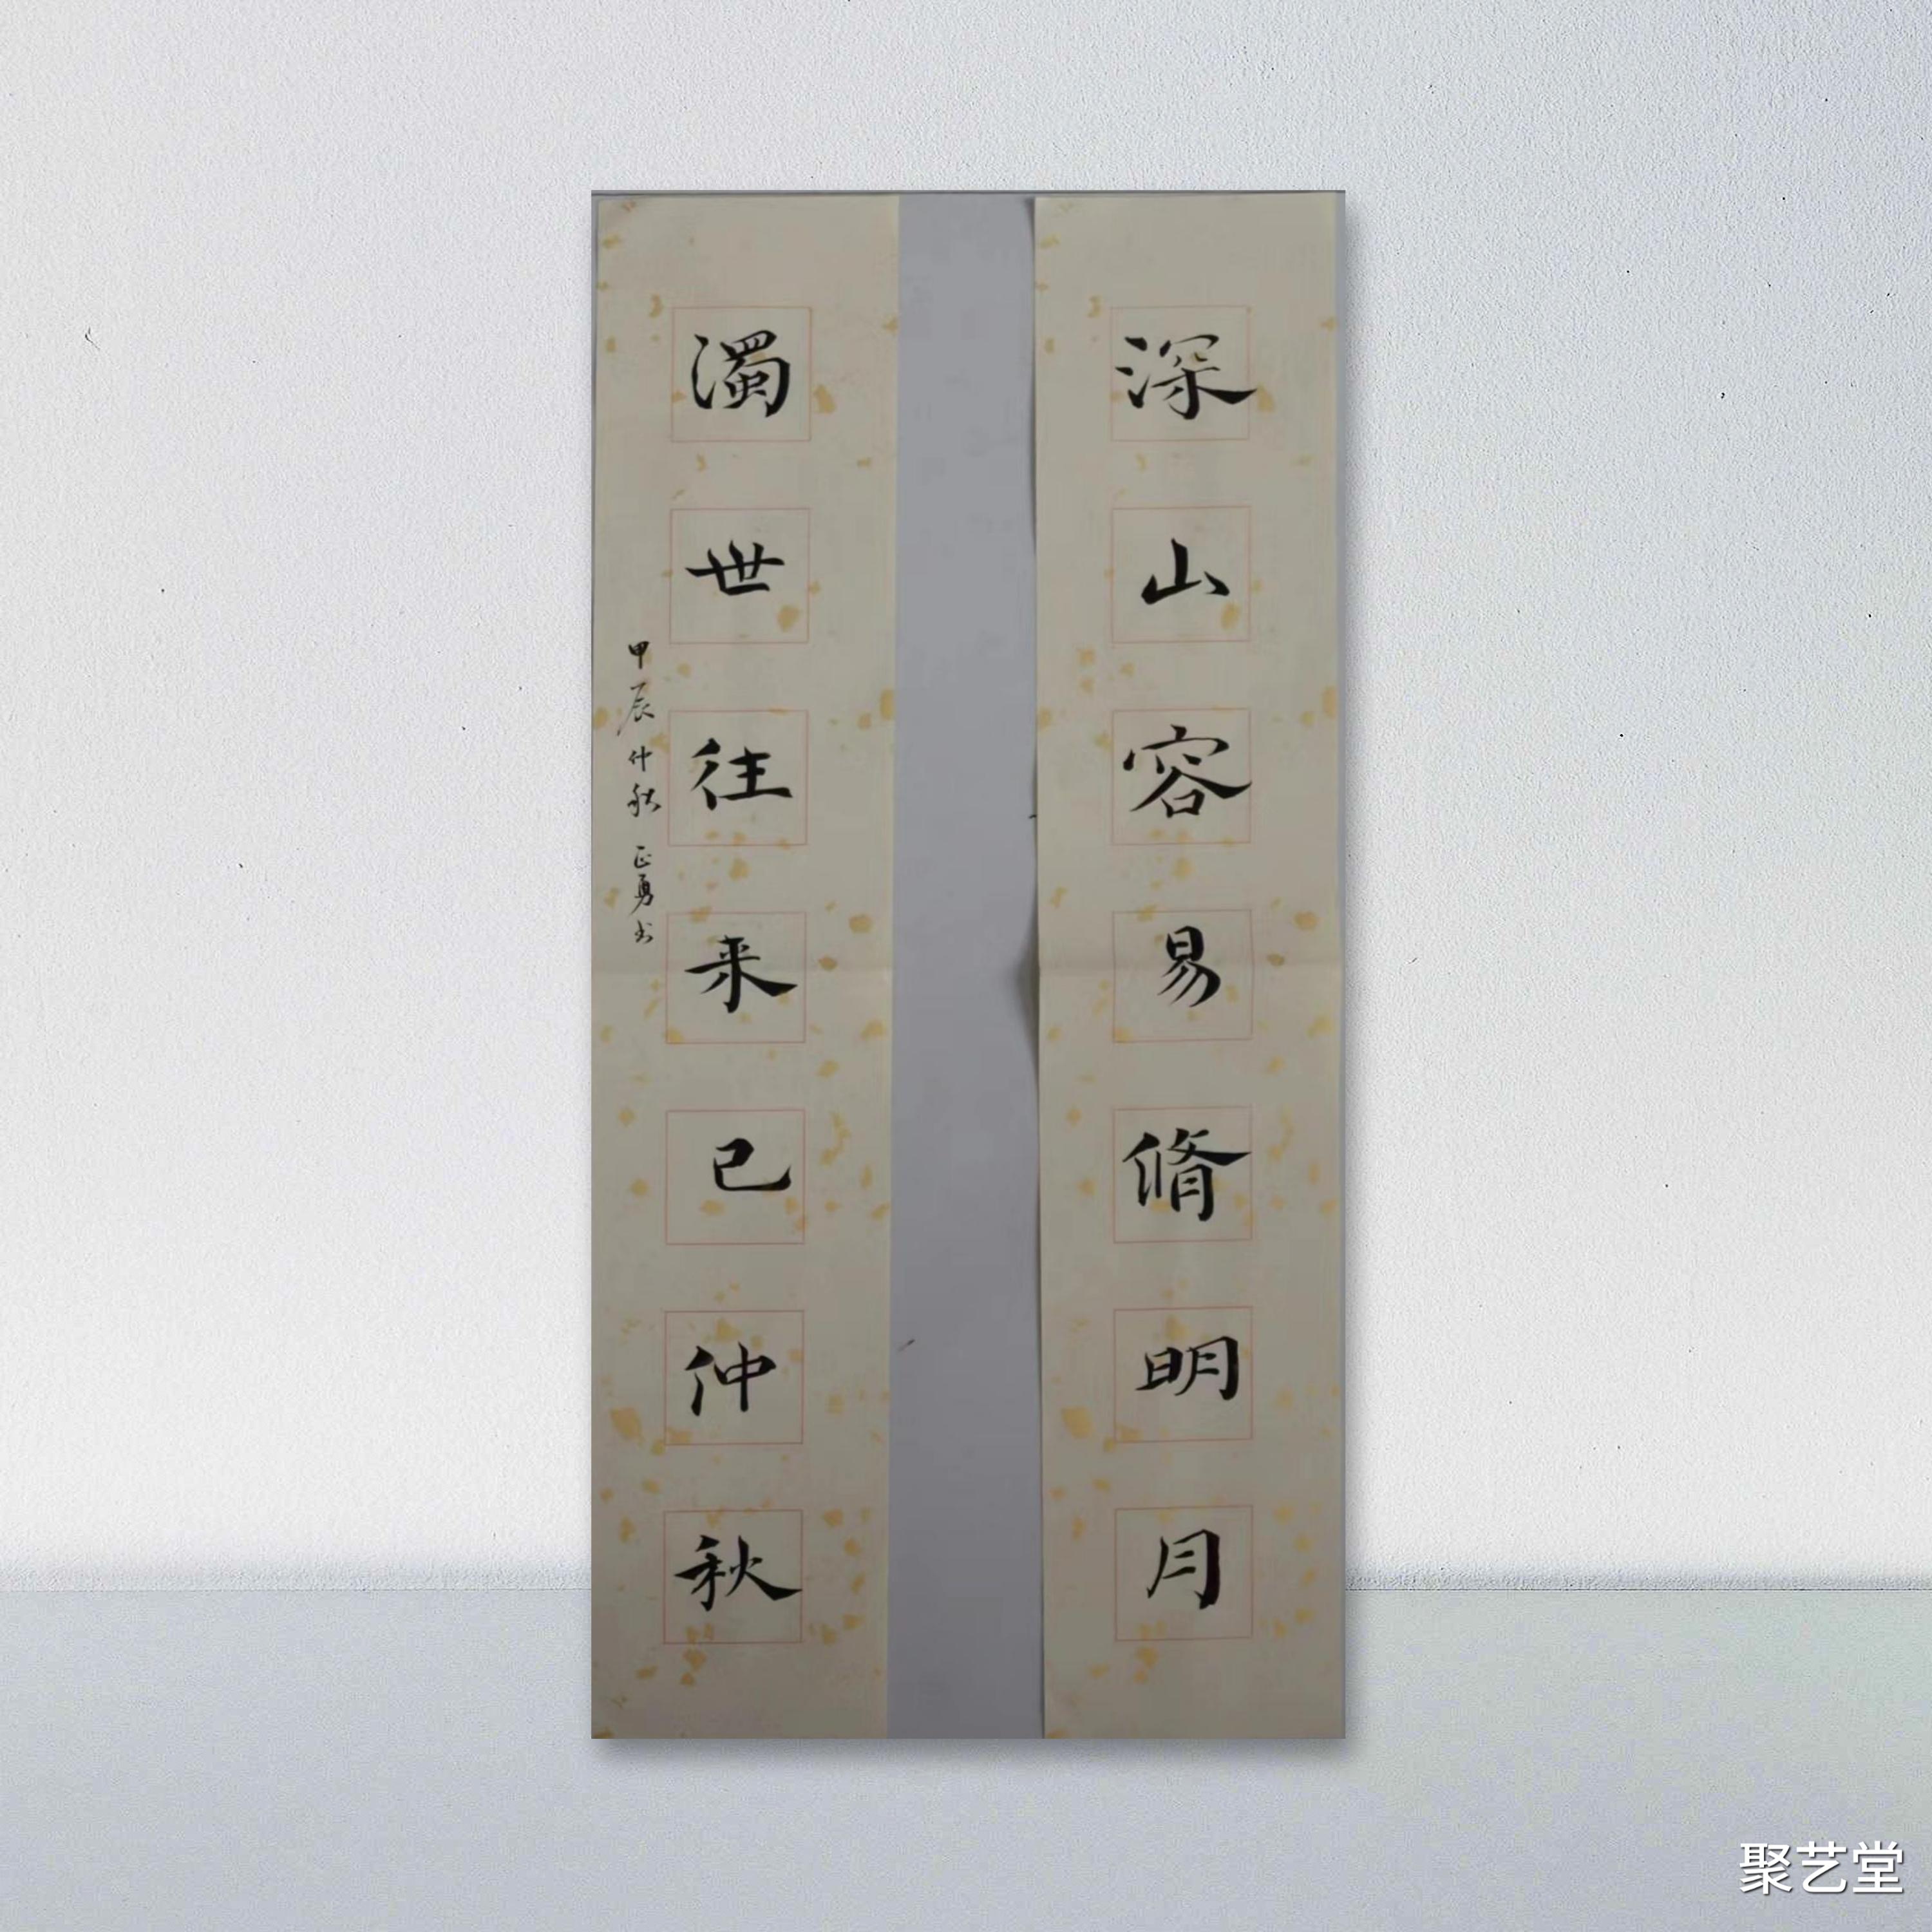 深山容易脩明月
濁世往来已仲秋
甲辰仲秋 正勇书
聚艺堂